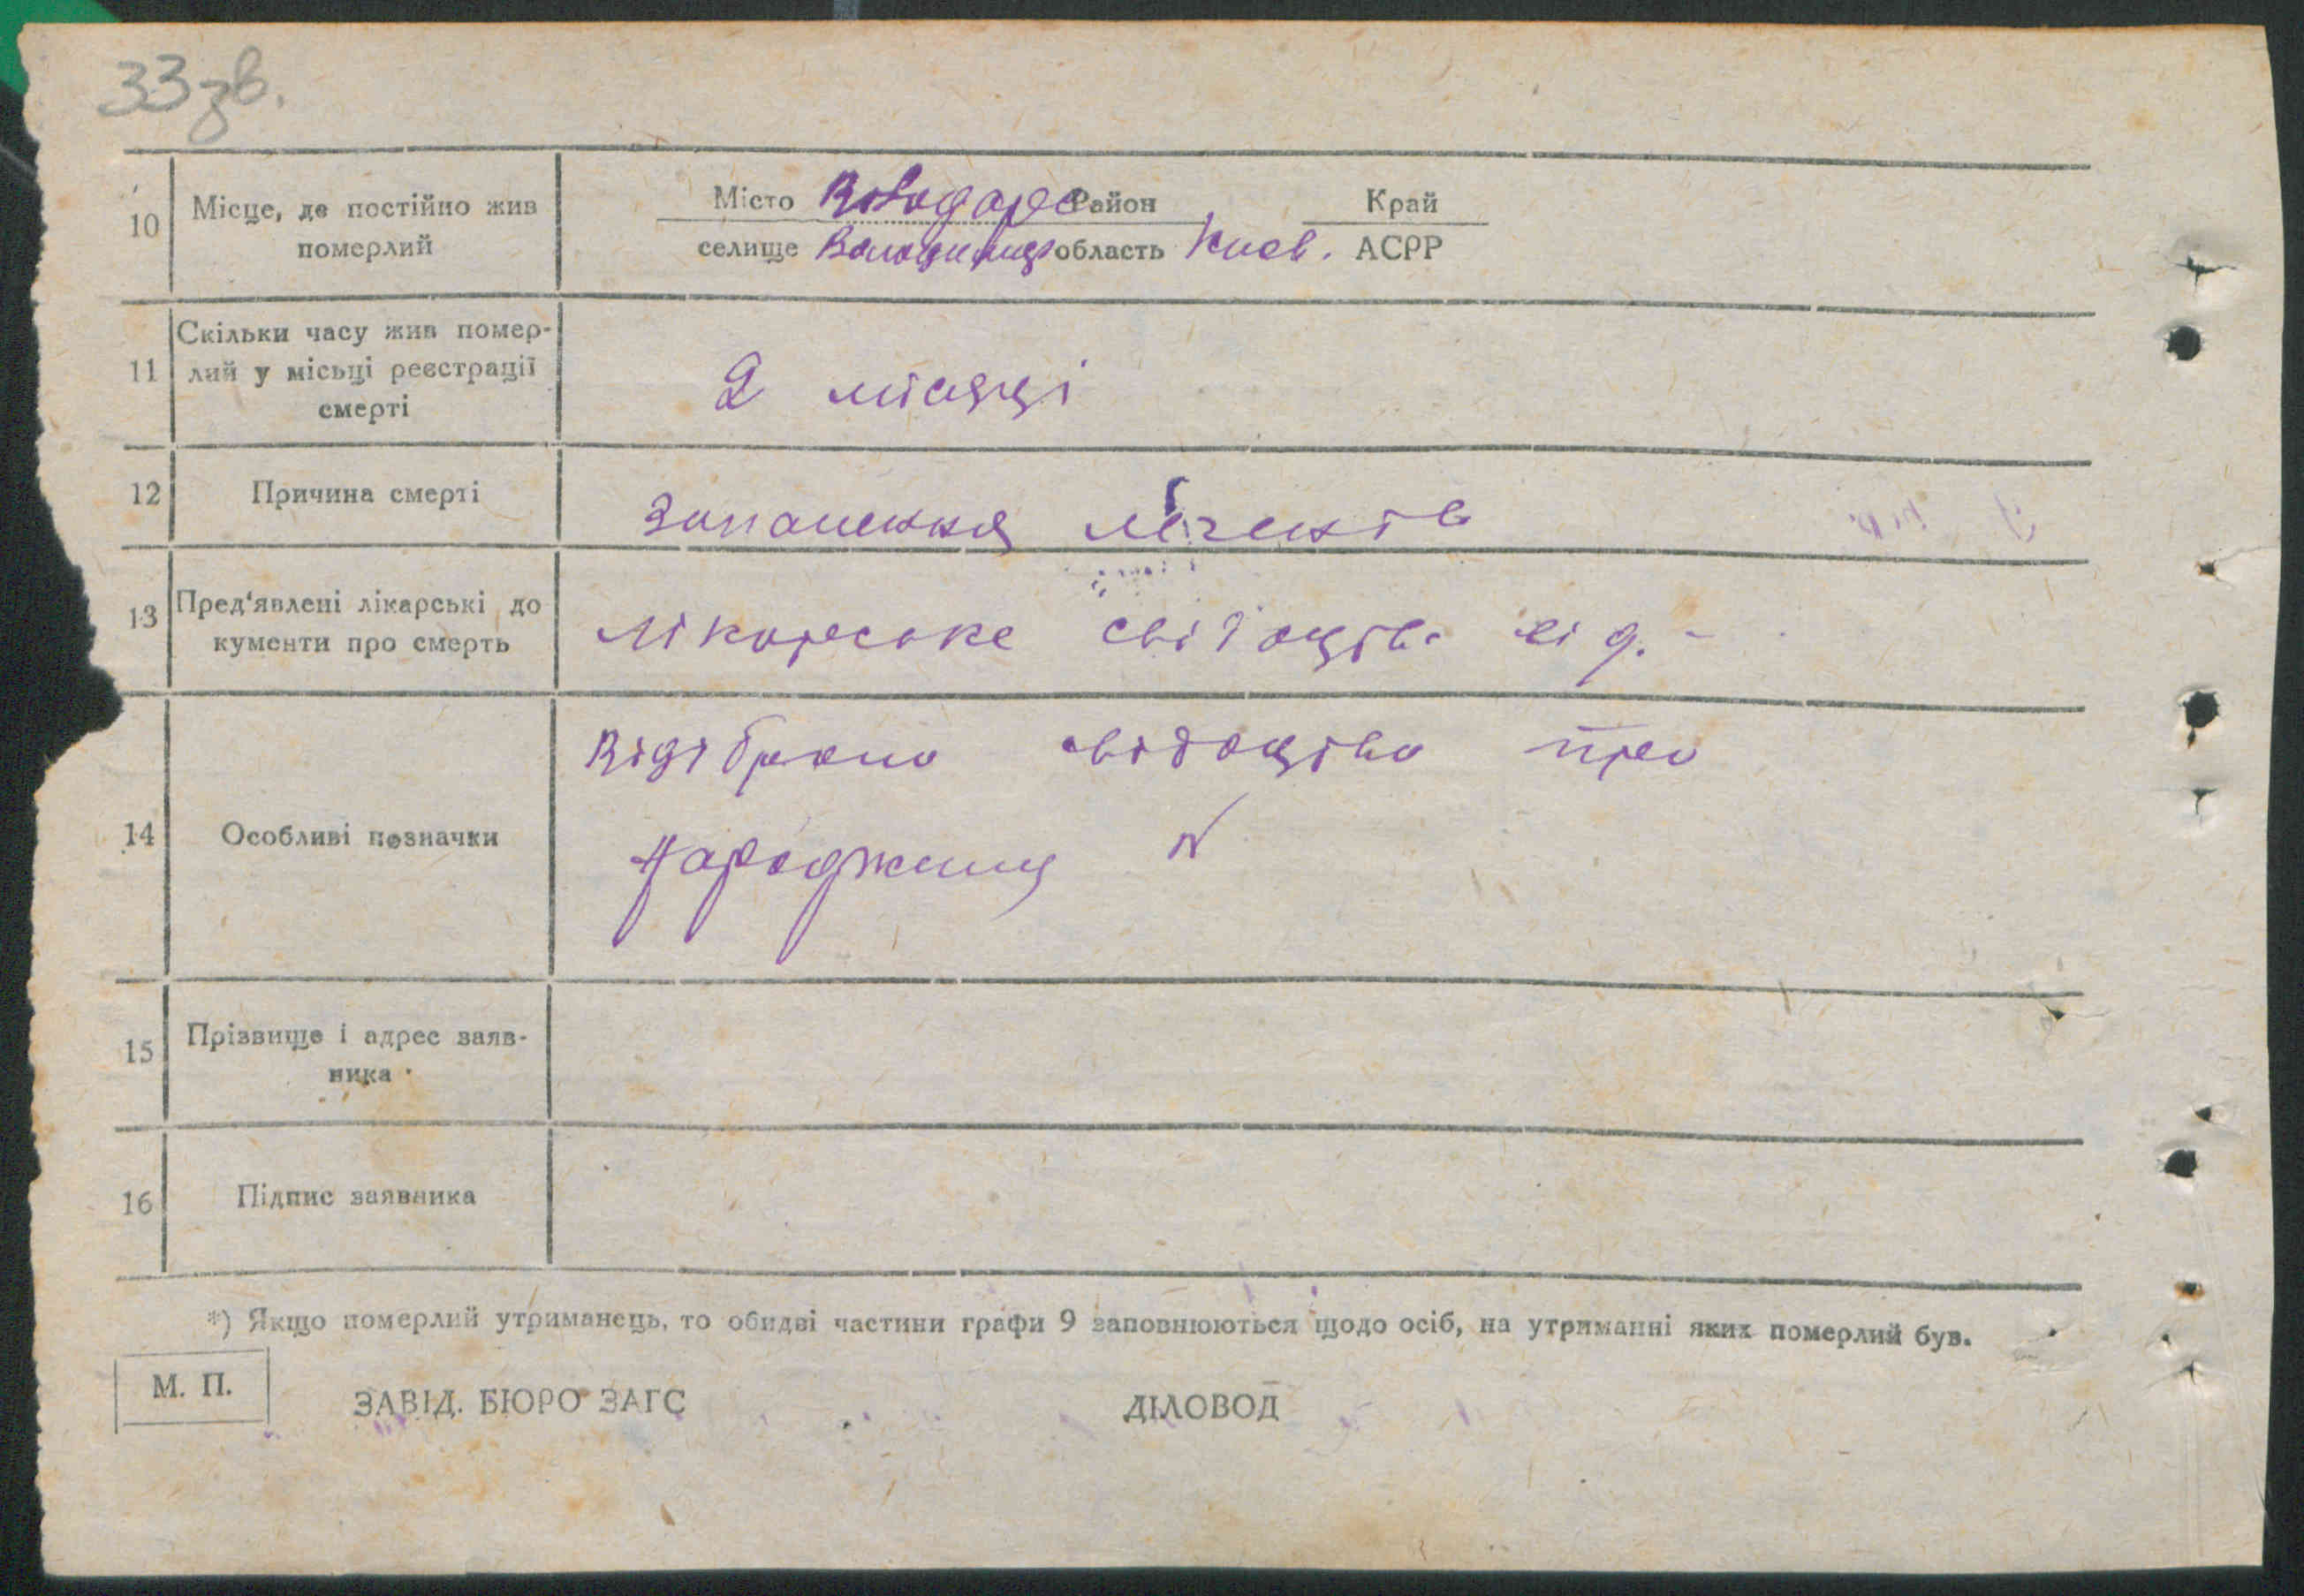 33 зв.
10 Місце, де постійно жив померлий
Місто Володарс Район Край
селище область Київ. АСРР
11 Скільки часу жив помер-
лий у місьці реєстрації
смерті
2 місяці
12 Причина смерті
Запалення легенів
13 Пред'явлені лікарські до
кументи про смерть
лікарське свідоцтв. від. -
14 Особливі позначки
Відібрано свідоцтво про
народження N
15 Прізвище і адрес заяв-
ника
16 Підпис заявника
*) Якщо померлий утриманець, то обидві частини графи 9 заповнюються щодо осіб, на утриманні яких померлий був.
М. П.
ЗАВІД. БЮРО ЗАГС ДІЛОВОД